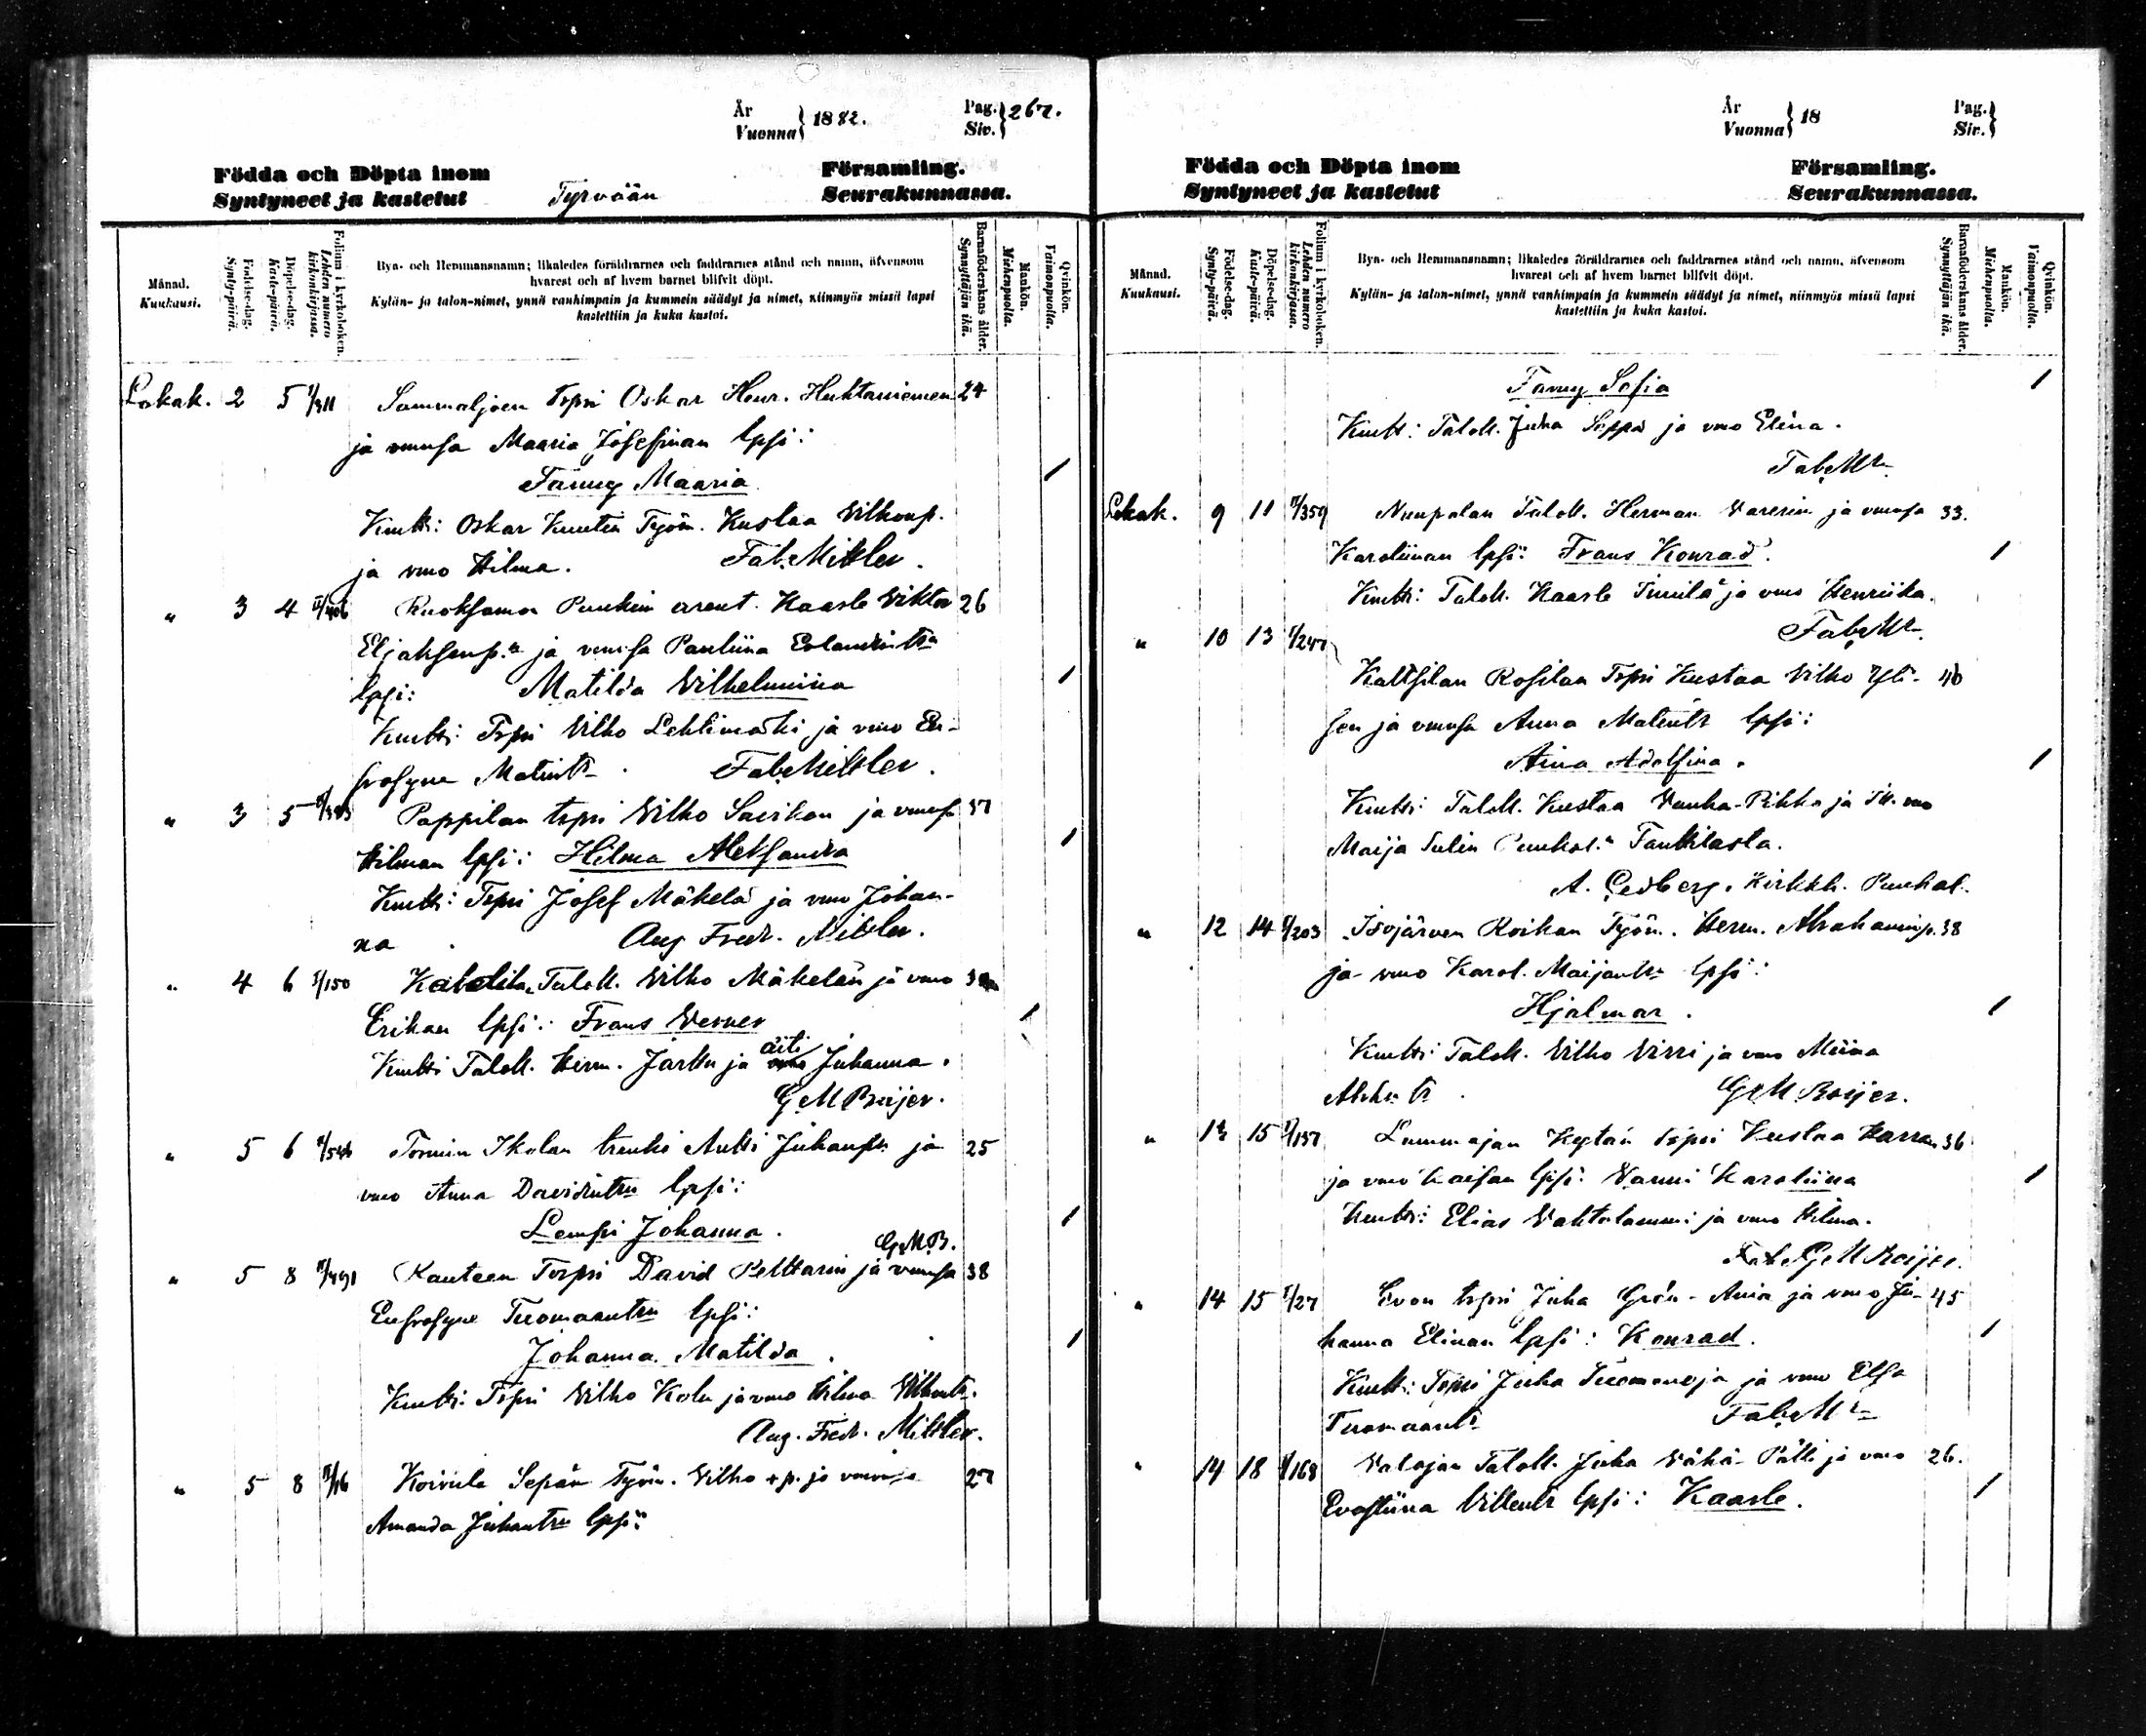 År
Vuonna } 1882.
Pag.
Siv. } 267.
Födda och Döpta inom
Syntyneet ja kastetut
Tyrvään
Församling.
Seurakunnassa.
Månad.
Kuukausi.
Födelse-dag.
Synty-päivä.
Döpelse-dag.
Kaste-päivä.
Folium i kyrkoboken.
Lehden numero kirkonkirjassa.
Bya- och Hemmansnamn; likaledes föräldrarnes och faddrarnes stånd och namn, äfvensom
hvarest och af hvem barnet blifvit döpt.
Kylän- ja talon-nimet, ynnä vanhimpain ja kummein säädyt ja nimet, niinmyös missä lapsi
kastettiin ja kuka kastoi.
Barnaföderskans ålder.
Synnyttäjän ikä.
Mankön.
Miehenpuolta.
Qvinkön.
Vaimonpuolta.
Lokak. 2 5 I/311 Sammaljoen Torpri Oskar Henr. Huhtaniemen 24
ja vmonsa Maaria Josefinan lpsi:
Fanny Maaria 1
Kmtti: Oskar Kuutin Työm. Kustaa Vilhonp.
ja vmo Hilma. Fab. Mittler.
" 3 4 II/406 Ruoksama arent. Kaarle Viktor 26
Eljaksenp.n ja vmonsa Pauliina Erlandint.n
lpsi: Matilda Vilhelmiina 1
Kmtti: Torpri Vilho Lehtimäki ja vmo Eu-
frosyne Matint. Fab. Mittler.
" 3 5 Pappilan torpri Vilho Sairikon ja vmonsa 37
Hilman lpsi: Hilma Aleksandra 1
Kmtti: Torpri Josef Mäkelä ja vmo Johan-
na. Aug Fredr. Mittler.
" 4 6 I/150 Taloll. Vilho Mäkelän ja vmo
Erikan lpsi: Frans Verner 1
Kmtti Taloll. Herm. Jarkku ja äiti Juhanna.
G M Roijer.
" 5 6 Tormin Ikolan trenki Antti Juhanp. ja 25
vmo Anna Davidintrn lpsi:
Lempi Johanna. 1
G M R.
" 5 8 II/491 Kauteen Torpri David Pelttarin ja vmonsa 38
Eufrosyne Tuomaantrn lpsi:
Johanna Matilda. 1
Kmtti: Torpri Vilho Kolu ja vmo Hilma Vilhont.
Aug. Fredr. Mittler.
" 5 8 II/16 Koivula Sepän Työm. Vilho +p. ja vmonsa 27
Amanda Juhantrn lpsi:
År
Vuonna } 18
Pag.
Siv. }
Födda och Döpta inom
Syntyneet ja kastetut
Församling.
Seurakunnassa.
Månad.
Kuukausi.
Födelse-dag.
Synty-päivä.
Döpelse-dag.
Kaste-päivä.
Folium i kyrkoboken.
Lehden numero kirkonkirjassa.
Bya- och Hemmansnamn; likaledes föräldrarnes och faddrarnes stånd och namn, äfvensom
hvarest och af hvem barnet blifvit döpt.
Kylän- ja talon-nimet, ynnä vanhimpain ja kummein säädyt ja nimet, niinmyös missä lapsi
kastettiin ja kuka kastoi.
Barnaföderskans ålder.
Synnyttäjän ikä.
Mankön.
Miehenpuolta.
Qvinkön.
Vaimonpuolta.
Fanny Sofia 1
Kmtt: Taloll. Juha Seppä ja vmo Elina.
Fab. Mr
Lokak. 9 11 II/359 Nuupalan Taloll. Herman Varerin ja vmonsa 33.
Karoliinan lpsi: Frans Konrad. 1
Kmtti: Taloll. Kaarle Simula ja vmo Henriika.
Fab Mr
" 10 13 I/247
Kaltsilan Rosilan Torpri Kustaa Vilho Yli- 40
sen ja vmonsa Anna Matintr lpsi:
Aina Adolfina. 1
Kmtti: Taloll. Kustaa Vanha-Pihka ja Tll. vmo
Maija Sulin Punkal.n Tankilasta.
A. Cedberg. Kirkkh. Punkal.
" 12 14 I/203 Isojärven Roikan Työm. Herm. Abrahaminp. 38
ja vmo Karol. Maijantr lpsi:
Hjalmar. 1
Kmtti: Taloll. Vilho Virri ja vmo Miina
G M Roijer.
" 15 I/137 Lummajan Kytän Torpri Kustaa Harran 36
ja vmo Kaisan lpsi: Vanni Karoliina 1
Kmtti: Elias Vahtolammi ja vmo Hilma.
G M Roijer.
" 14 15 I/27 Evon torpri Juha Grön-Ania ja vmo Ju- 45
hanna Elinan lpsi: Konrad. 1
Kmtt: Torpri Juha Tuomenoja ja vmo Elsa
Tuomaantr Fab Mr
" 14 18 I/168 Valajan Taloll. Juha Vähä-Pätti ja vmo 26.
Evastiina Villentr lpsi: Kaarle. 1